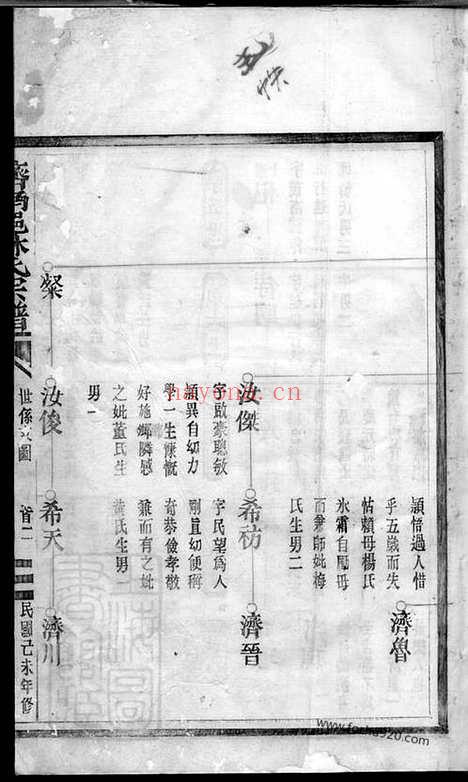 五帙
濟魯
穎悟過人惜
乎五歲而失
怙賴母楊氏
氷霜自勵母
而兼師妣梅
氏生男二
汝傑
希祊
濟晉
字啟豪聰敏
穎異自幼力
學一生慷慨
好施鄉隣感
之妣董氏生
男一
字民望爲人
剛直幼便稱
奇恭儉孝敬
兼而有之妣
黃氏生男
粲
汝俊
希天
濟川
邑林氏宗譜
世係次圖
首二
民國己未年修
nayona.cn
www.fork920.com